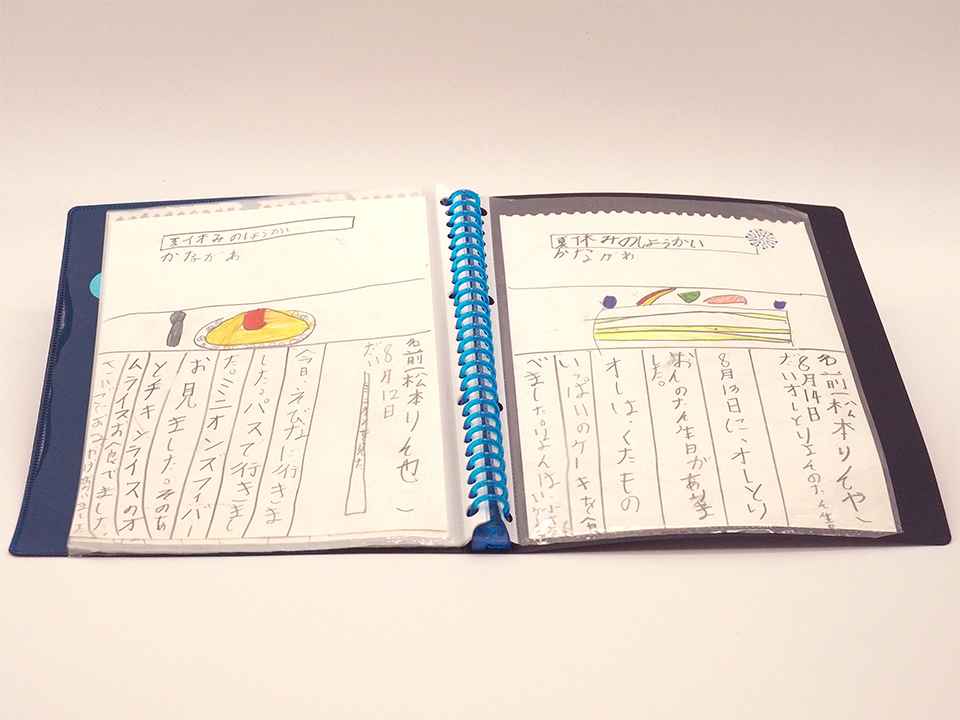 夏休みのしょうかい
かながわ
名前(松本りそ也)
8月12日
だい
今日、えびなに行きま
した。バスで行きまし
た。ミニオンズフィバー
お見ました。そのあ
とチキンライスのオ
ムライスおべ食でました
夏休みのしょうかい
かながわ
名前(松本りそや)
8月14日
だいオーしとりよんのたん生
8月13日に、オーしとり
よんのたん生日がありま
した。
オーしは、くだもの
いっぱいのケーキをた
べました。りよんは